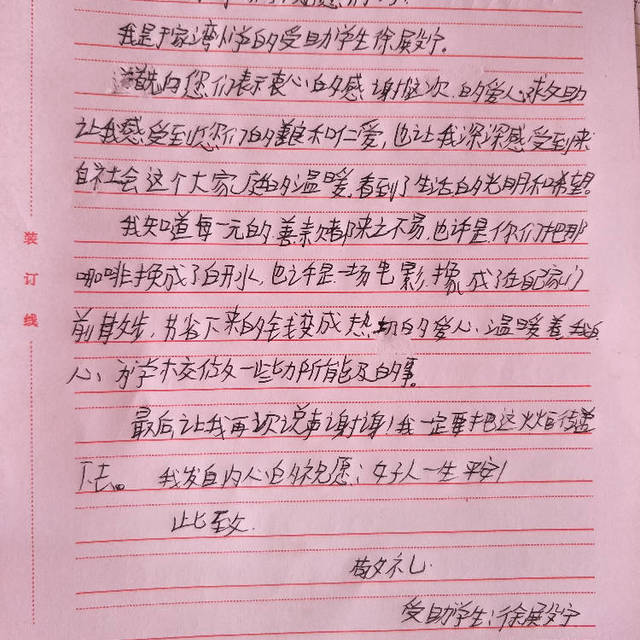 我是于家湾小学的受助学生徐展宁。
首先向您们表示衷心的感谢这次的爱心求助
让我感受到您们的善良和仁爱,也让我深深感受到来
自社会这个大家庭的温暖,看到了生活的光明和希望。
我知道每一元的善款都来之不易,也许是你们把那
咖啡换成了白开水,也许是一场电影,换成了在自己家门
前散步,节省下来的金钱变成热切的爱心、温暖着我
心,为学校做一些力所能及的事。
最后让我再次说声谢谢!我一定要把这火炬传递
下去。 我发自内心的祝愿:好人一生平安!
此致
敬礼
受助学生:徐展宁
装
订
线